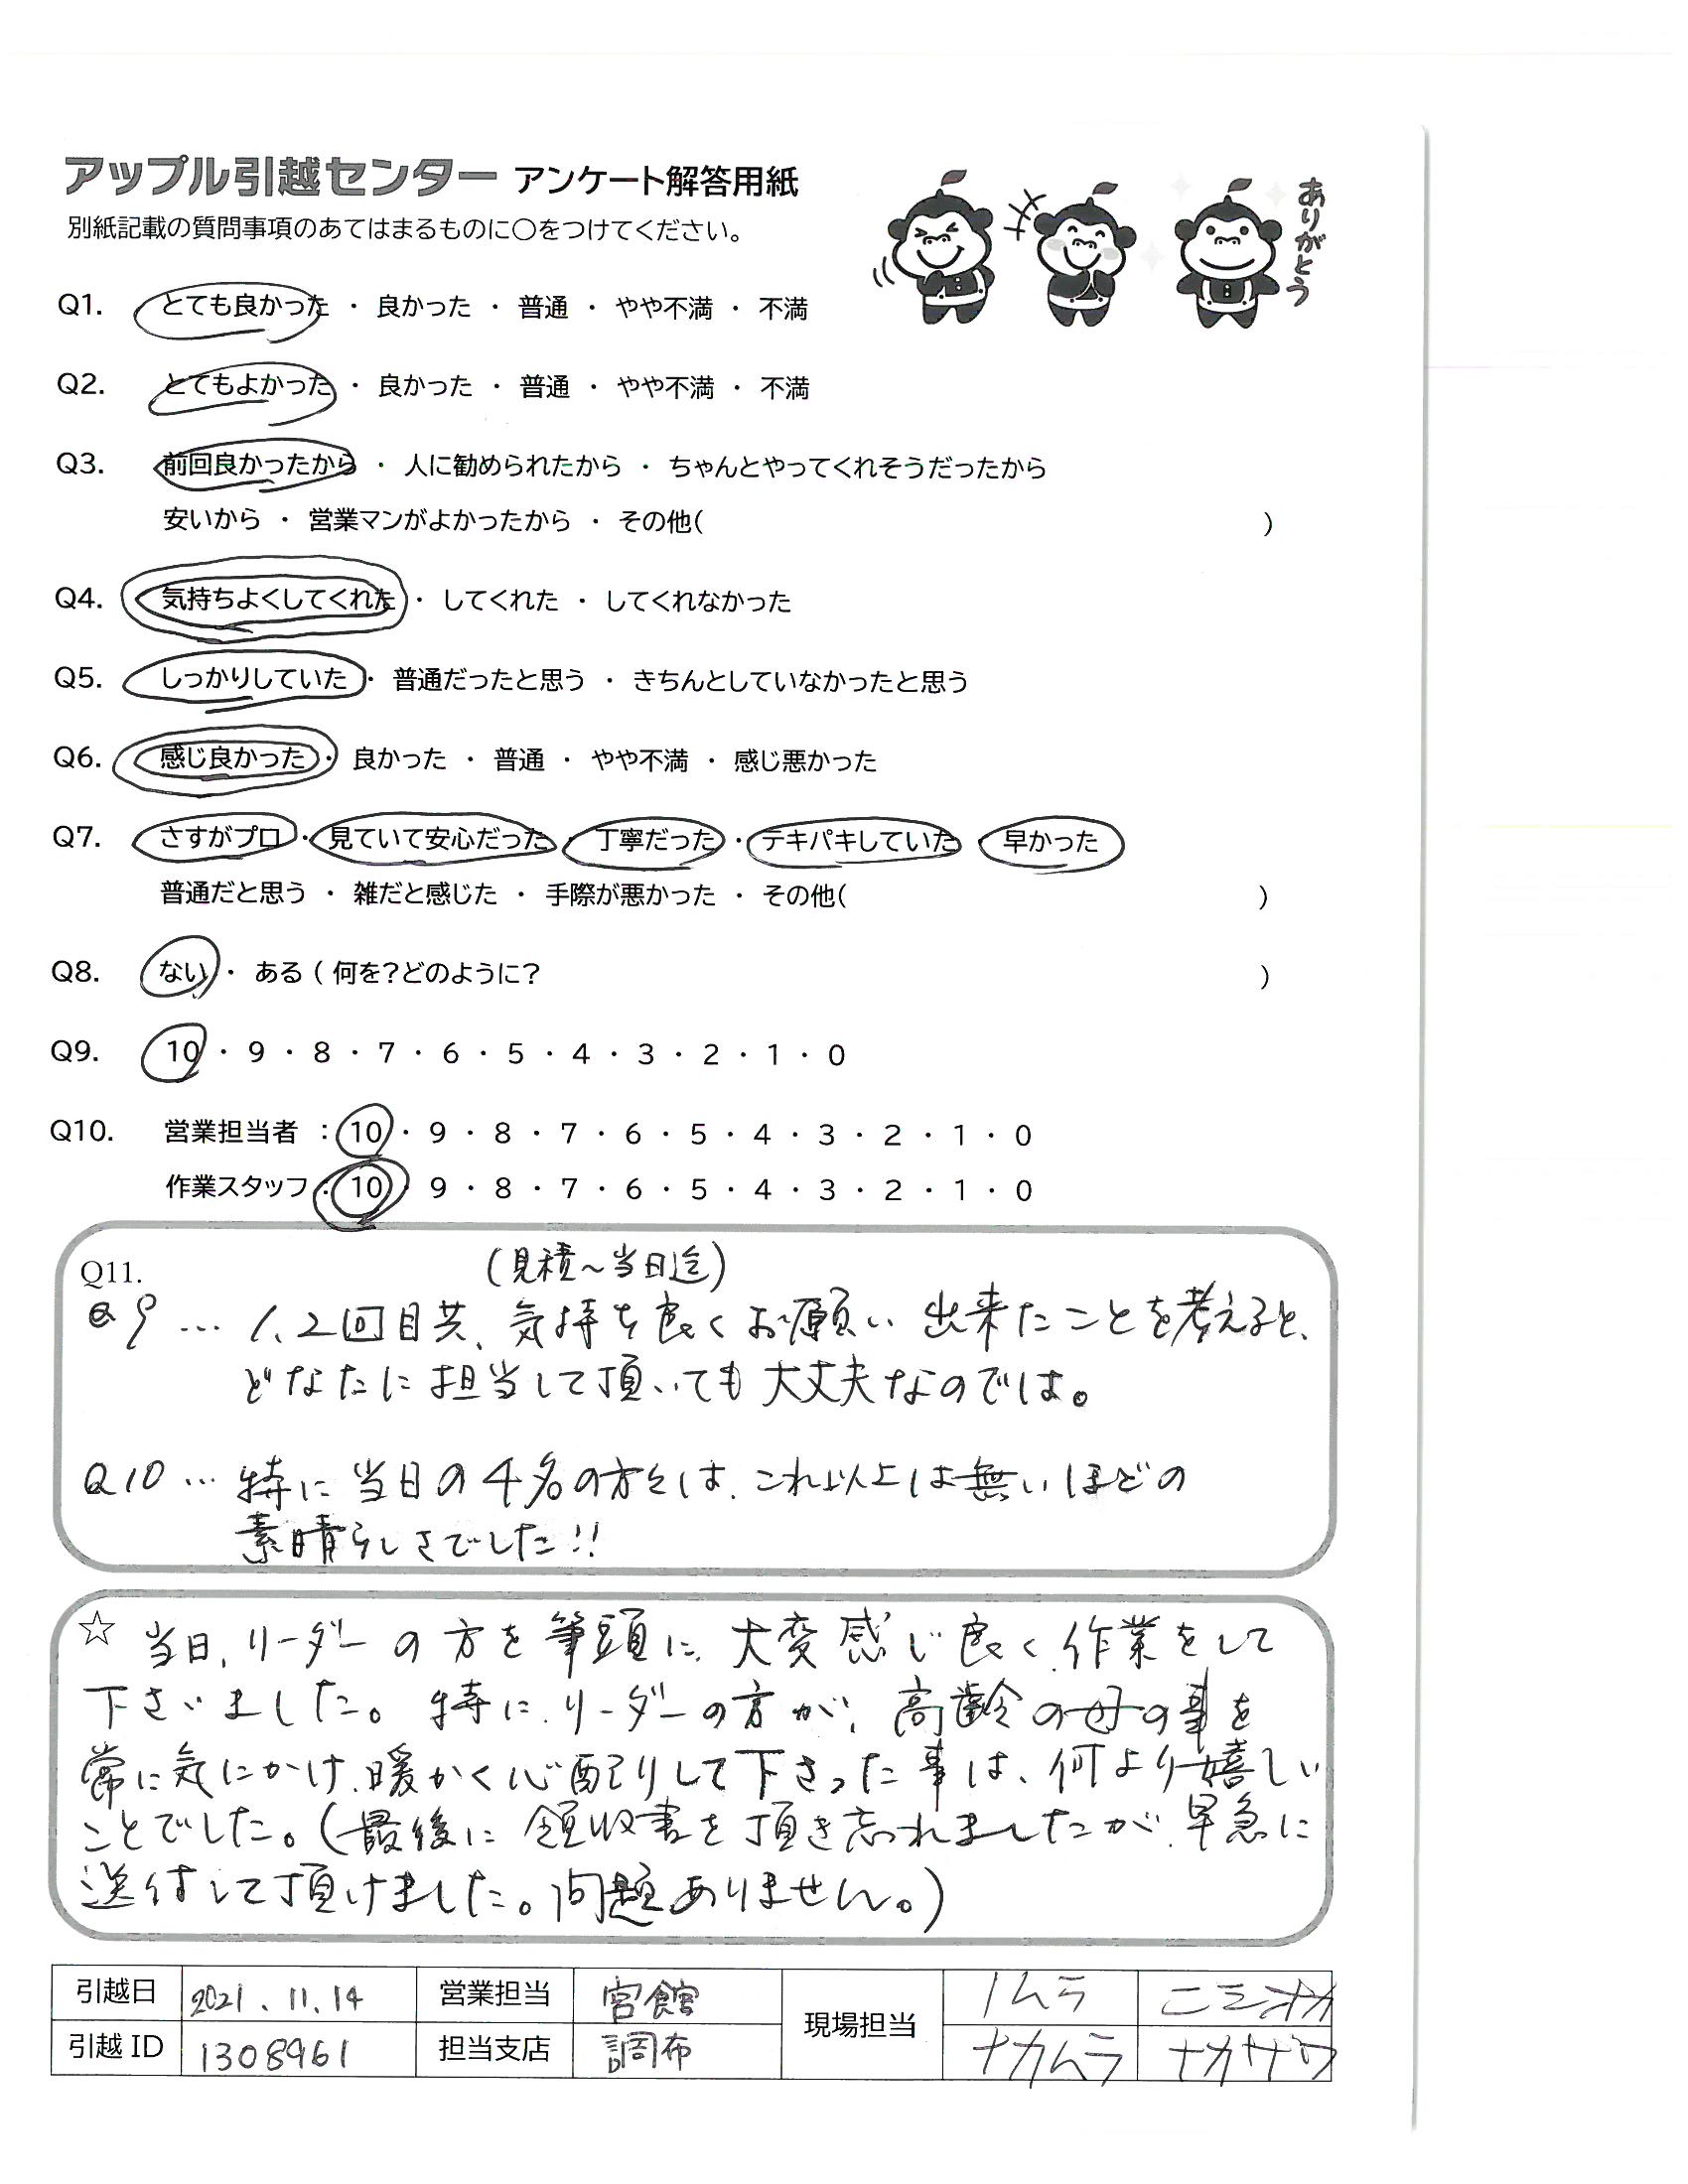 アップル引越センター アンケート解答用紙
別紙記載の質問事項のあてはまるものに○をつけてください。
ありがとう
Q1. とても良かった ・ 良かった ・ 普通 ・ やや不満 ・ 不満
Q2. とてもよかった ・ 良かった ・ 普通 ・ やや不満 ・ 不満
Q3. 前回良かったから ・ 人に勧められたから ・ ちゃんとやってくれそうだったから
安いから ・ 営業マンがよかったから ・ その他( )
Q4. 気持ちよくしてくれた ・ してくれた ・ してくれなかった
Q5. しっかりしていた ・ 普通だったと思う ・ きちんとしていなかったと思う
Q6. 感じ良かった ・ 良かった ・ 普通 ・ やや不満 ・ 感じ悪かった
Q7. さすがプロ ・ 見ていて安心だった ・ 丁寧だった ・ テキパキしていた ・ 早かった
普通だと思う ・ 雑だと感じた ・ 手際が悪かった ・ その他( )
Q8. ない ・ ある ( 何を?どのように? )
Q9. 10 ・ 9 ・ 8 ・ 7 ・ 6 ・ 5 ・ 4 ・ 3 ・ 2 ・ 1 ・ 0
Q10. 営業担当者 : 10 ・ 9 ・ 8 ・ 7 ・ 6 ・ 5 ・ 4 ・ 3 ・ 2 ・ 1 ・ 0
作業スタッフ : 10 ・ 9 ・ 8 ・ 7 ・ 6 ・ 5 ・ 4 ・ 3 ・ 2 ・ 1 ・ 0
Q11. (見積~当日迄)
Q9 … 1、2回目共、気持ち良くお願い出来たことを考えると、
どなたに担当して頂いても大丈夫なのでは。
Q10 … 特に当日の4名の方々は、これ以上は無いほどの
素晴らしさでした!!
☆ 当日、リーダーの方を筆頭に、大変感じ良く、作業をして
下さいました。特に、リーダーの方が、高齢の母の事を
常に気にかけ、暖かく心配りして下さった事は、何より嬉しい
ことでした。(最後に領収書を頂き忘れましたが、早急に
送付して頂けました。問題ありません。)
引越日 2021.11.14 営業担当 宮舘 現場担当 ノムラ ニシオカ
引越ID 1308961 担当支店 調布 ナカムラ ナカザワ